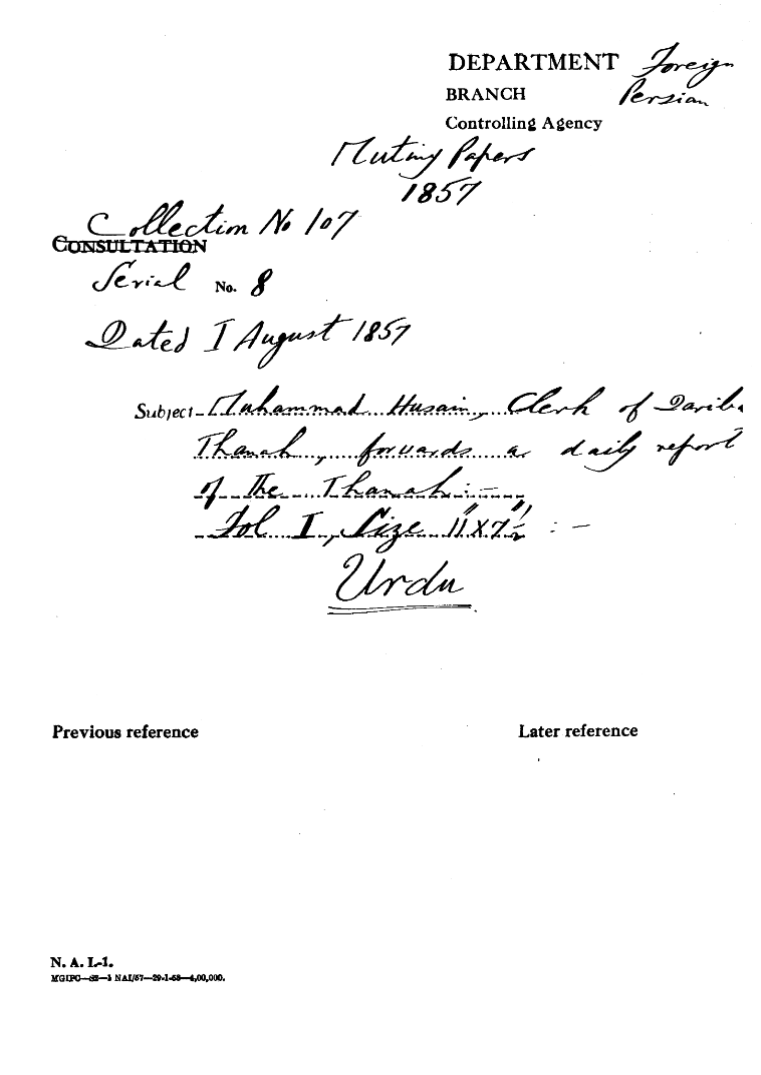 DEPARTMENT Foreign
BRANCH Persian
Controlling Agency
Mutiny Papers
1857
Collection No 107
CONSULTATION
Serial No. 8
Dated I August 1857
Subject- Muhammad Husain, Clerk of Dariba
Thanah, forwards a daily report
of the Thanah :-
Fol I, Size 11" x 7½" : -
Urdu
Previous reference Later reference
N. A. I.-1.
MGIPC—S2—5 NAI/57—29-1-58—4,00,000.